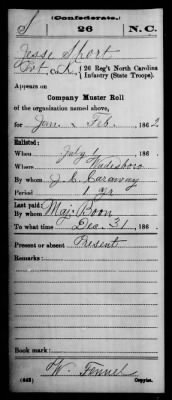 (Confederate.)
S 26 N.C.
Jesse Short
Pvt, Co. K, 26 Reg't North Carolina
Infantry (State Troops).
Appears on
Company Muster Roll
of the organization named above,
for Jan. & Feb., 1862
Enlisted:
When July 1, 186
Where Wadesboro
By whom J. C. Caraway
Period 1 Yr
Last paid:
By whom Maj. Boon
To what time Dec. 31, 186
Present or absent Present
Remarks:
Book mark:
W. Fennel
(642) Copyist.